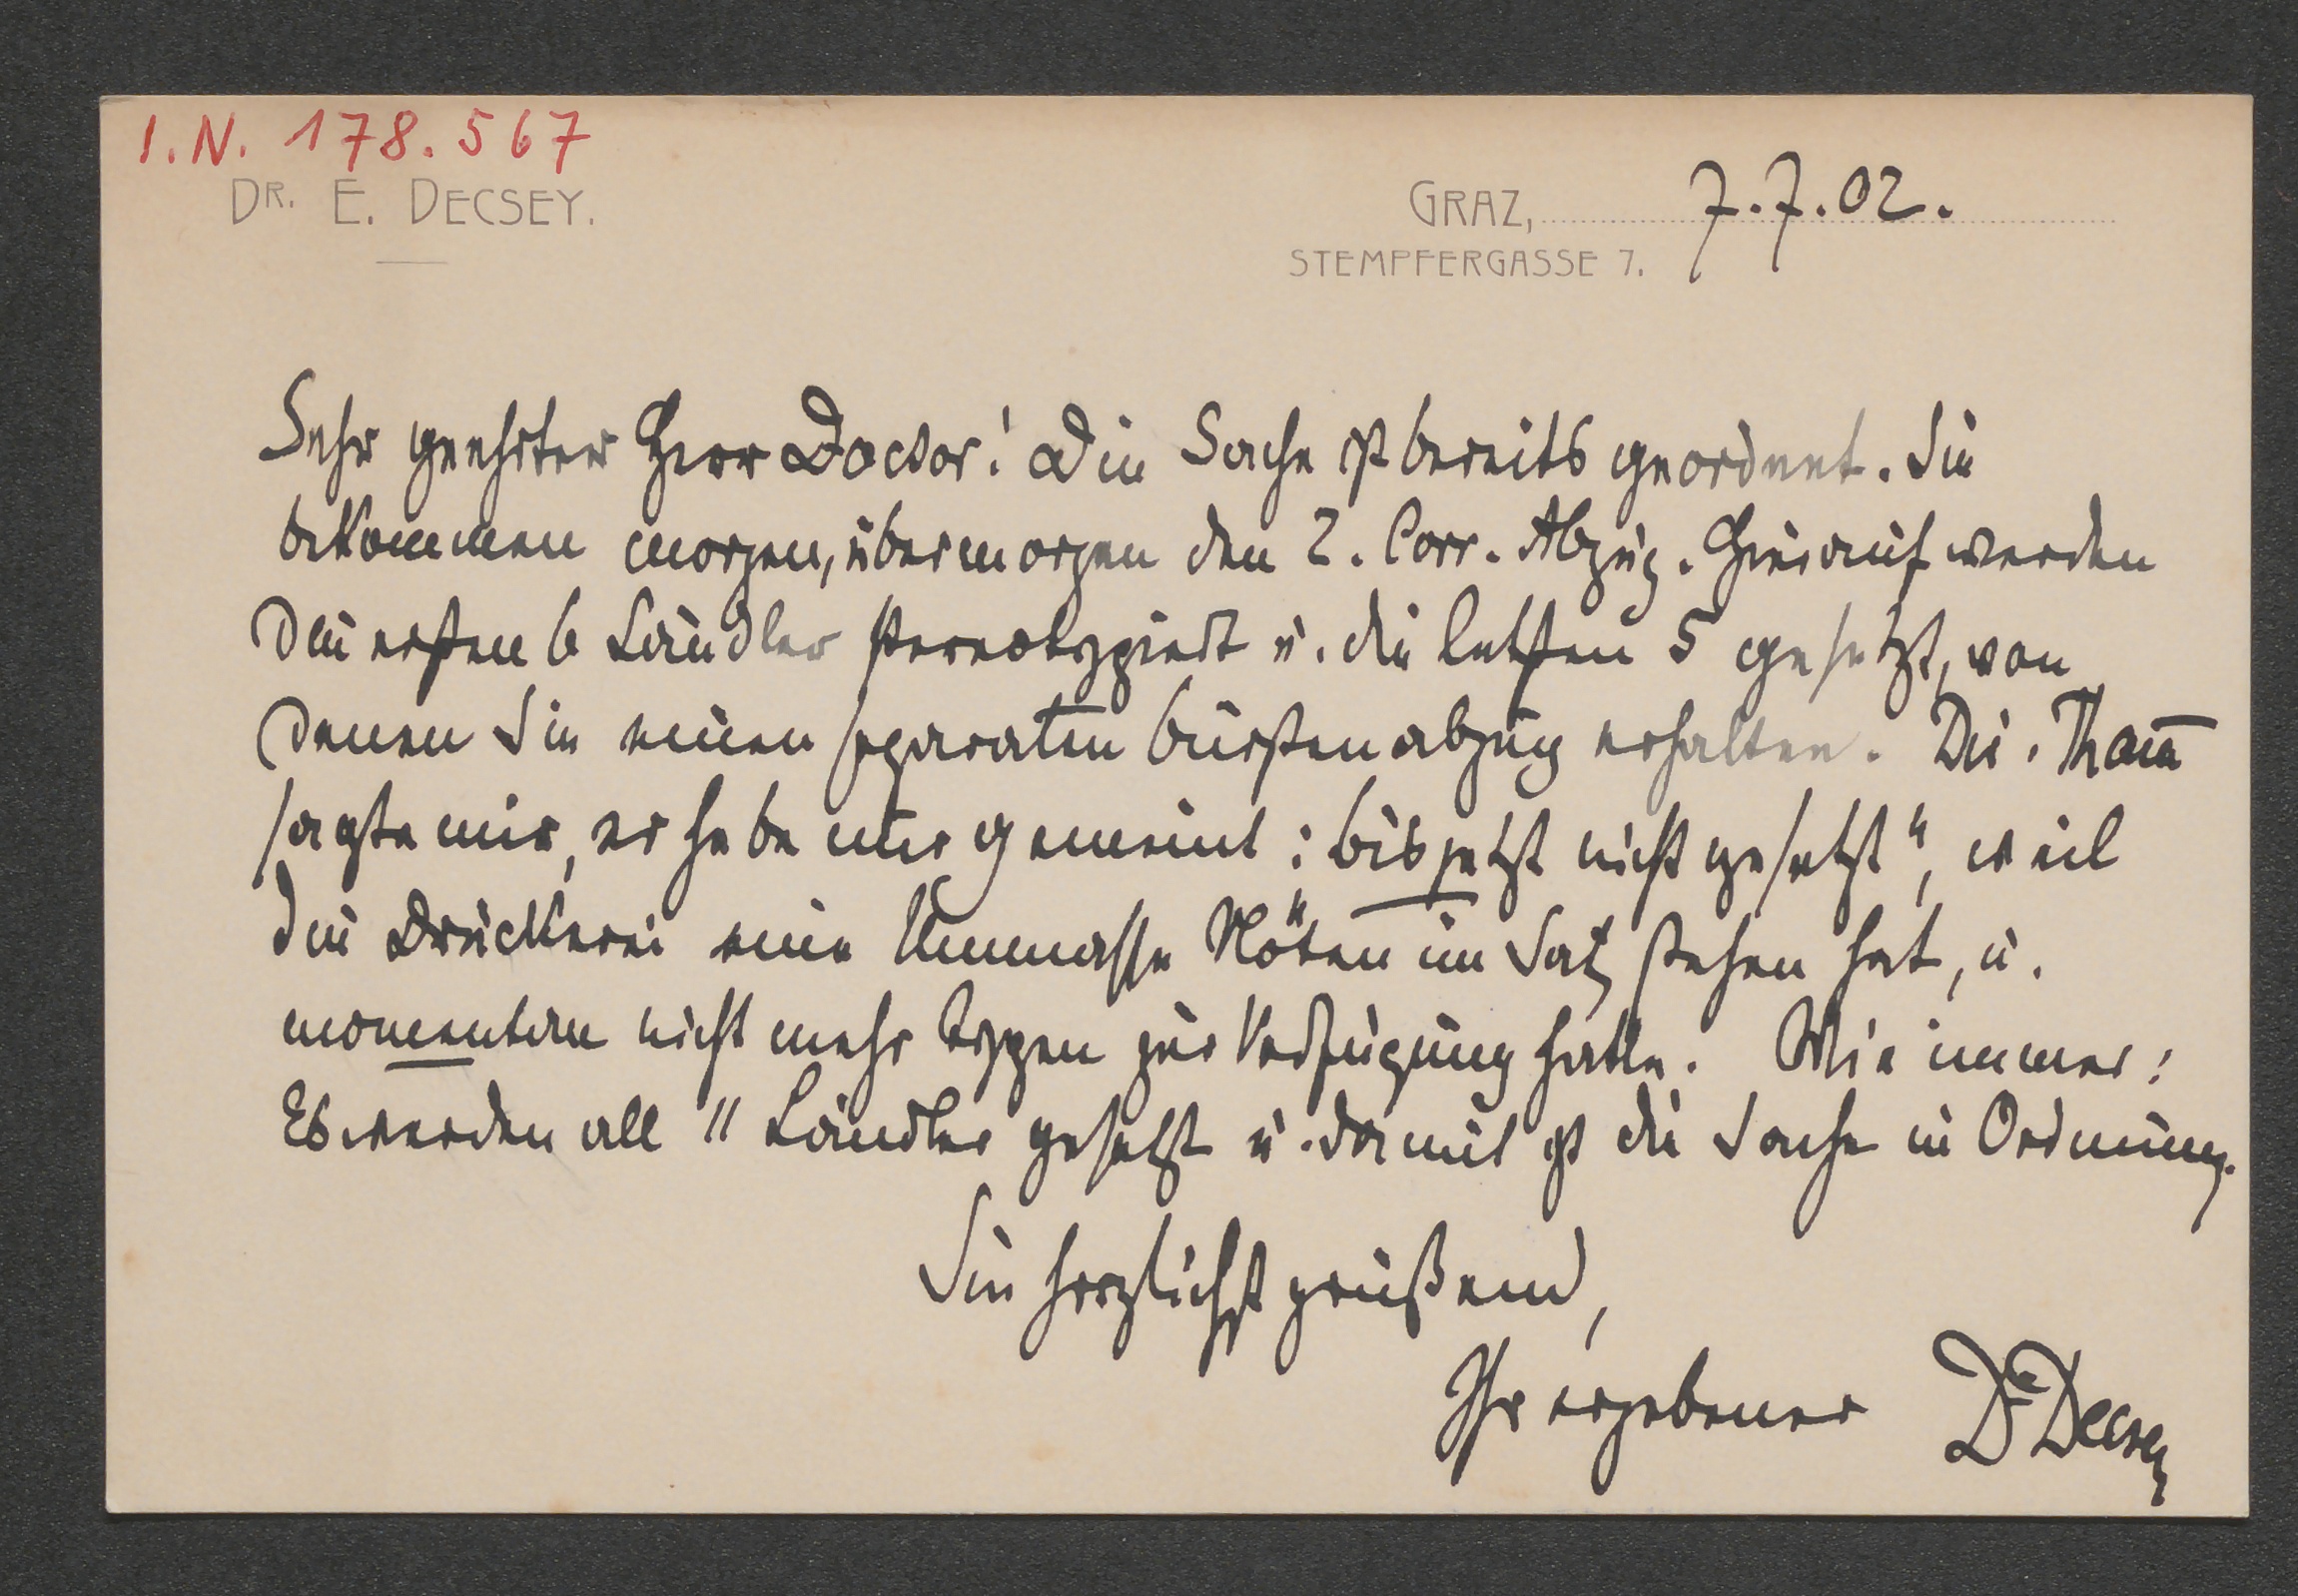 I.N. 178.567
DR. E. DECSEY.
GRAZ, 7.7.02.
STEMPFERGASSE 7.
Sehr geehrter Herr Doctor! Die Sache ist bereits geordnet. Sie
bekommen morgen, übermorgen den 2. Corr. Abzug. Hierauf werden
die ersten 6 Ländler stereotypiert u. die letzten 5 gesetzt, von
denen Sie einen separaten Bürstenabzug erhalten. Dir.
sagte mir, er habe nur gemeint: bis jetzt nicht gesetzt", weil
die Druckerei eine Unmasse Nöten im Satz stehen hat, u.
momentan nicht mehr Typen zur Verfügung hatte. Wie immer:
Es werden all 11 Ländler gesetzt u. damit ist die Sache in Ordnung.
Sie herzlichst grüßend,
Ihr ergebener Dr Decsey